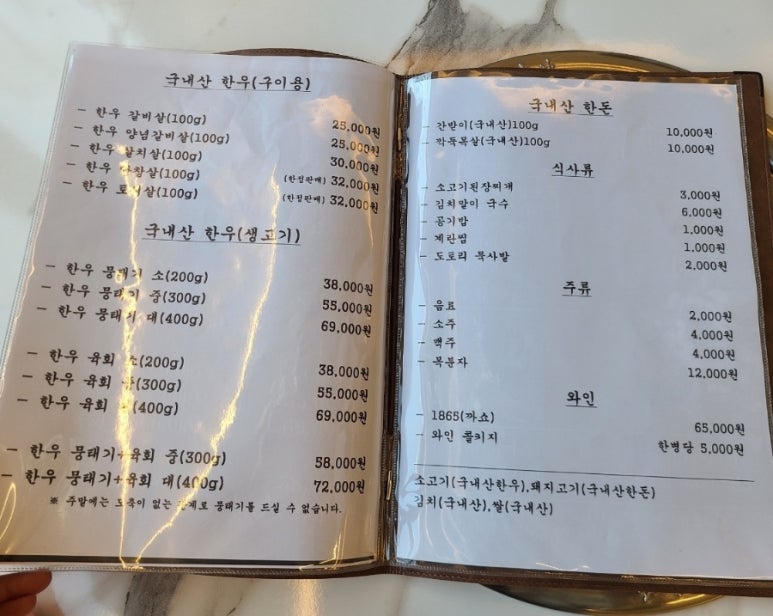 국내산 한우(구이용)
- 한우 갈비살(100g) 25,000원
- 한우 양념갈비살(100g) 25,000원
- 한우 살치살(100g) 30,000원
- 한우 (100g) (한정판매) 32,000원
- 한우 (100g) (한정판매) 32,000원
국내산 한우(생고기)
- 한우 뭉태기 소(200g) 38,000원
- 한우 뭉태기 중(300g) 55,000원
- 한우 뭉태기 대(400g) 69,000원
- 한우 육회 소(200g) 38,000원
- 한우 육회 중(300g) 55,000원
- 한우 육회 (400g) 69,000원
- 한우 뭉태기+육회 중(300g) 58,000원
- 한우 뭉태기+육회 대(400g) 72,000원
※ 주말에는 도축이 없는 관계로 뭉태기를 드실 수 없습니다.
국내산 한돈
- 간받이(국내산)100g 10,000원
- 깍둑목살(국내산)100g 10,000원
식사류
- 소고기된장찌개 3,000원
- 김치말이 국수 6,000원
- 공기밥 1,000원
- 계란찜 1,000원
- 도토리 묵사발 2,000원
주류
- 음료 2,000원
- 소주 4,000원
- 맥주 4,000원
- 복분자 12,000원
와인
- 1865(까쇼) 65,000원
- 와인 콜키지 한병당 5,000원
소고기(국내산한우),돼지고기(국내산한돈)
김치(국내산),쌀(국내산)